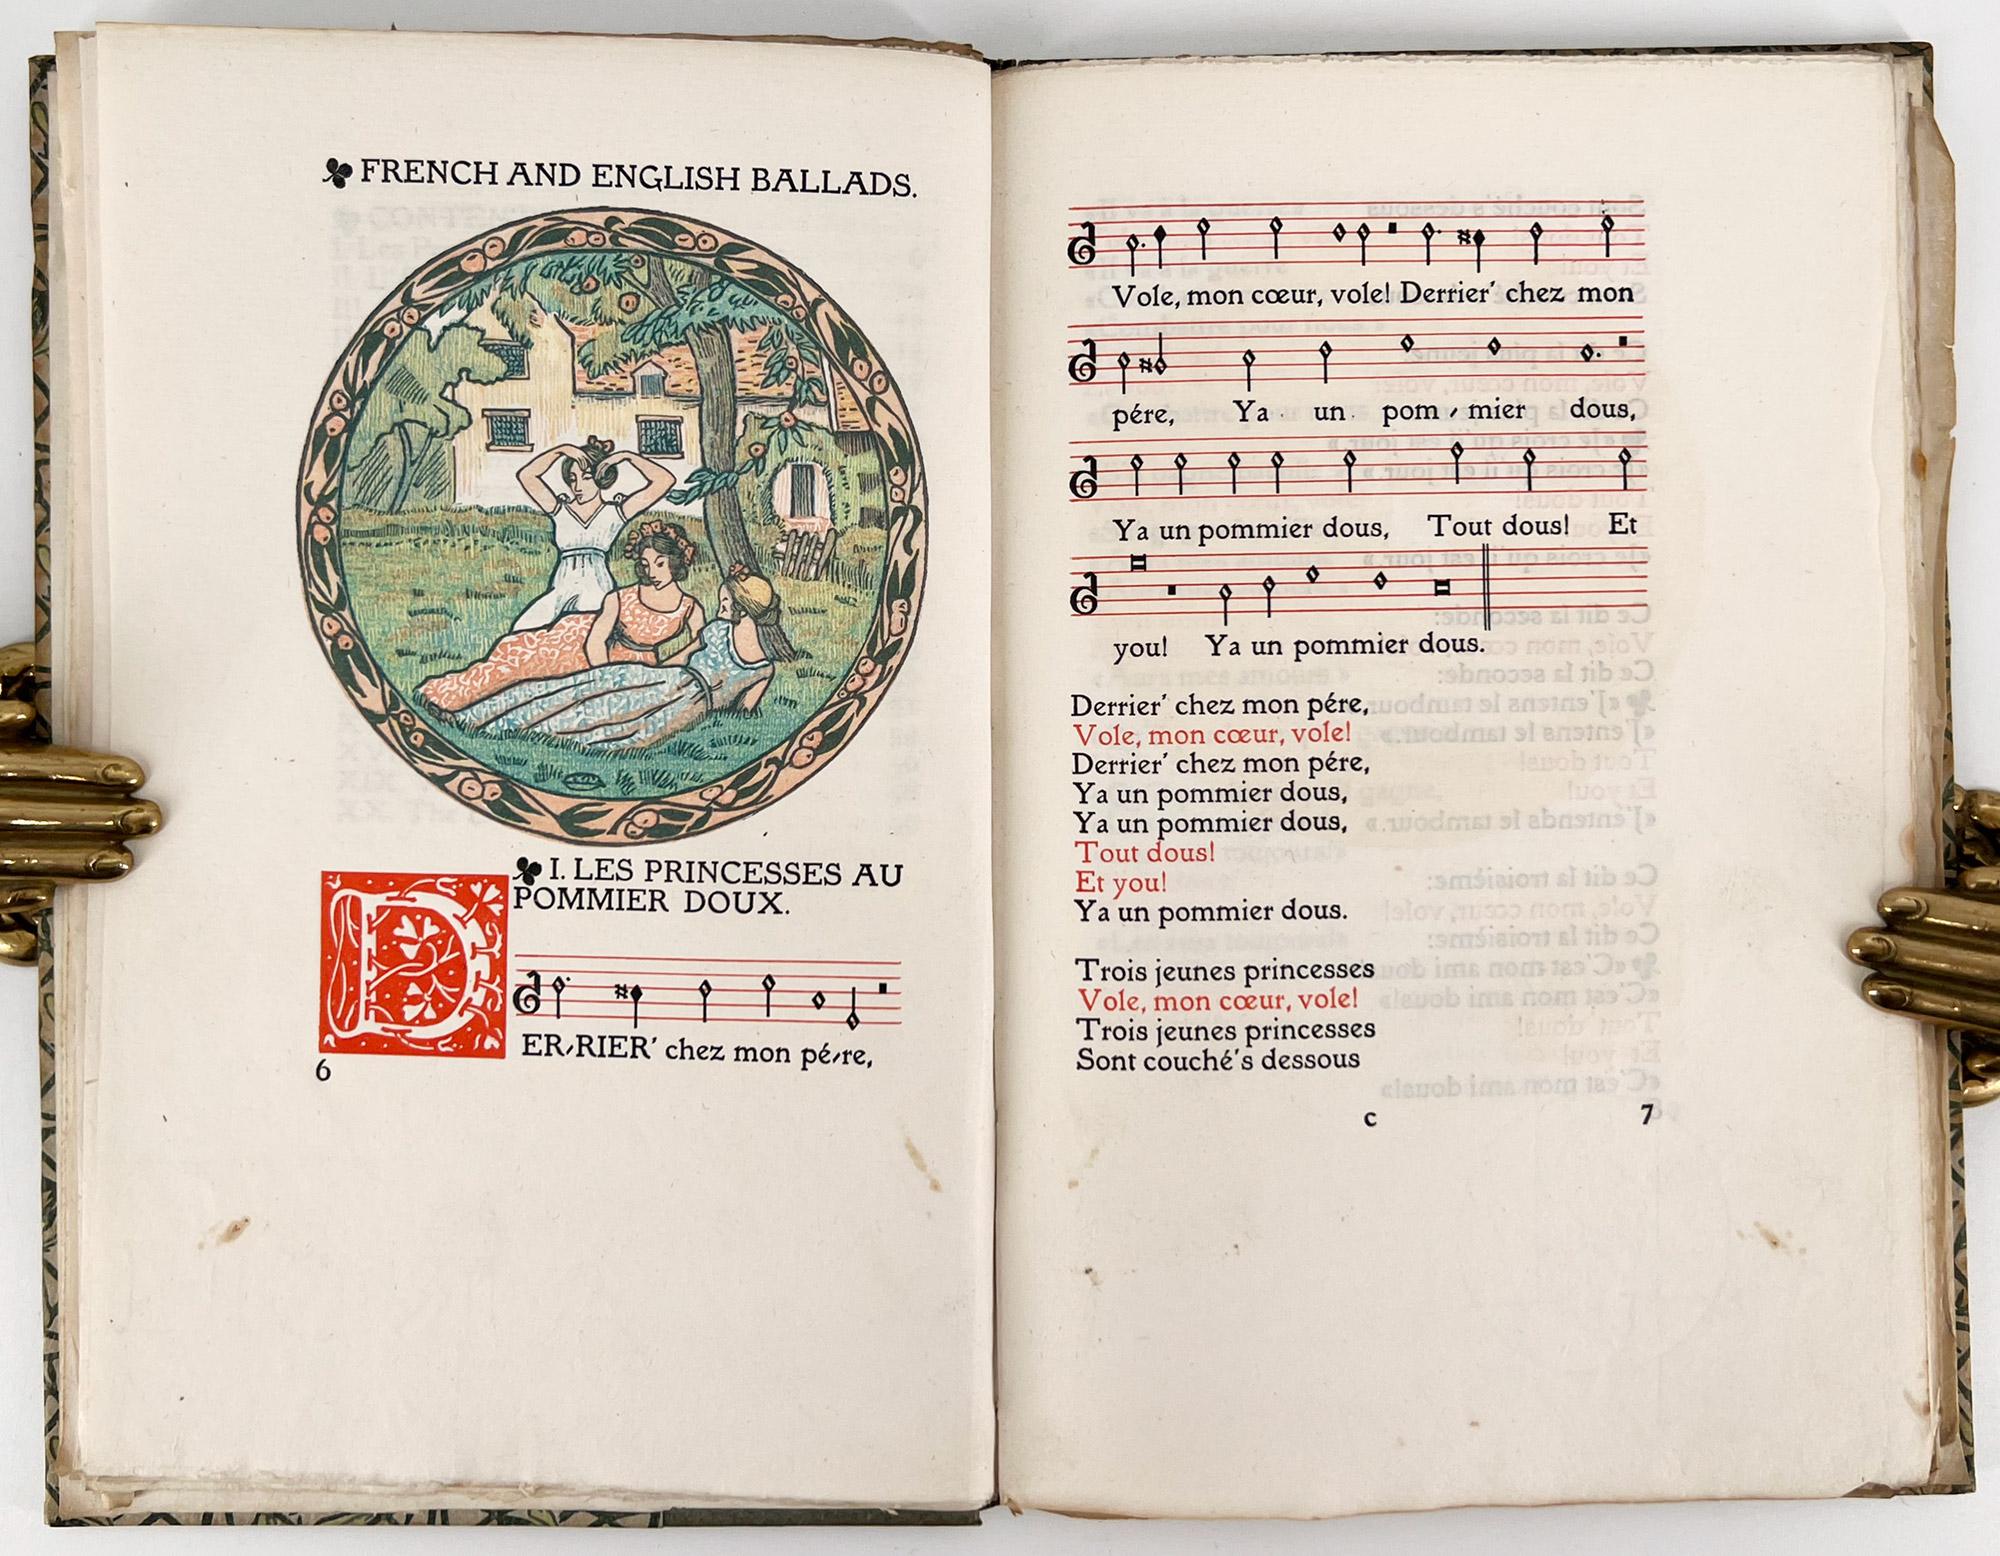 FRENCH AND ENGLISH BALLADS.
I. LES PRINCESSES AU
POMMIER DOUX.
DER-RIER' chez mon pé-re,
6
Vole, mon cœur, vole! Derrier' chez mon
pére, Ya un pom-mier dous,
Ya un pommier dous, Tout dous! Et
you! Ya un pommier dous.
Derrier' chez mon pére,
Vole, mon cœur, vole!
Derrier' chez mon pére,
Ya un pommier dous,
Ya un pommier dous,
Tout dous!
Et you!
Ya un pommier dous.
Trois jeunes princesses
Vole, mon cœur, vole!
Trois jeunes princesses
Sont couché's dessous
c 7